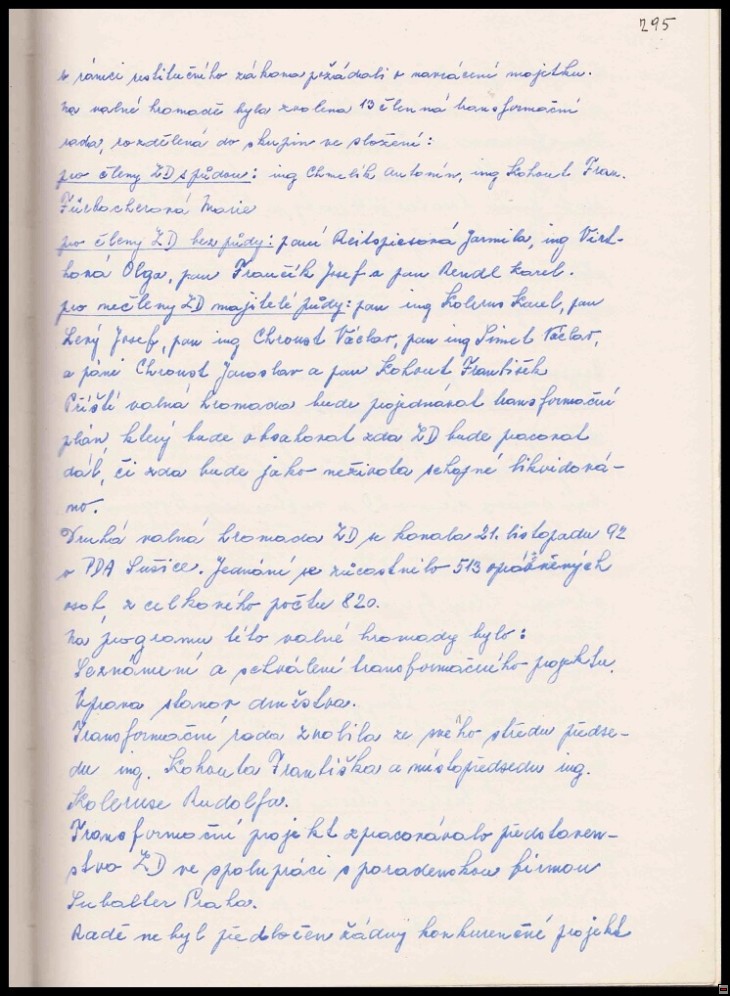 295
v rámci restitučního zákona požádali o navrácení majetku.
Na valné hromadě byla zvolena 13 členná transformační
rada, rozdělená do skupin ve složení:
pro členy ZD s půdou: ing Chmelík Antonín, ing Kohout Fran.
Fürbacherová Marie
pro členy ZD bez půdy: paní Jarmila, ing
Olga, pan Frančík Josef a pan Rendl Karel.
pro nečleny ZD majitelé půdy: pan ing Kolerus Karel, pan
Levý Josef, pan ing Chroust Václav, pan ing Šimet Václav,
a páni Chroust Jaroslav a pan Kohout František
Příští valná hromada bude pojednávat transformační
plán který bude obsahovat zda ZD bude pracovat
dál, či zda bude jako neživota schopné likvidová-
no.
Druhá valná hromada ZD se konala 21. listopadu 92
v PDA Sušice. Jednání se zúčastnilo 513 oprávněných
osob z celkového počtu 820.
Na programu této valné hromady bylo:
Seznámení a schválení transformačního projektu.
Úprava stanov družstva.
Transformační rada zvolila ze svého středu předse-
du ing. Kohouta Františka a místopředsedu ing.
Koleruse Rudolfa.
Transformační projekt zpracovávalo představen-
stvo ZD ve spolupráci s poradenskou firmou
Subalter Praha.
Radě nebyl předložen žádný konkurenční projekt